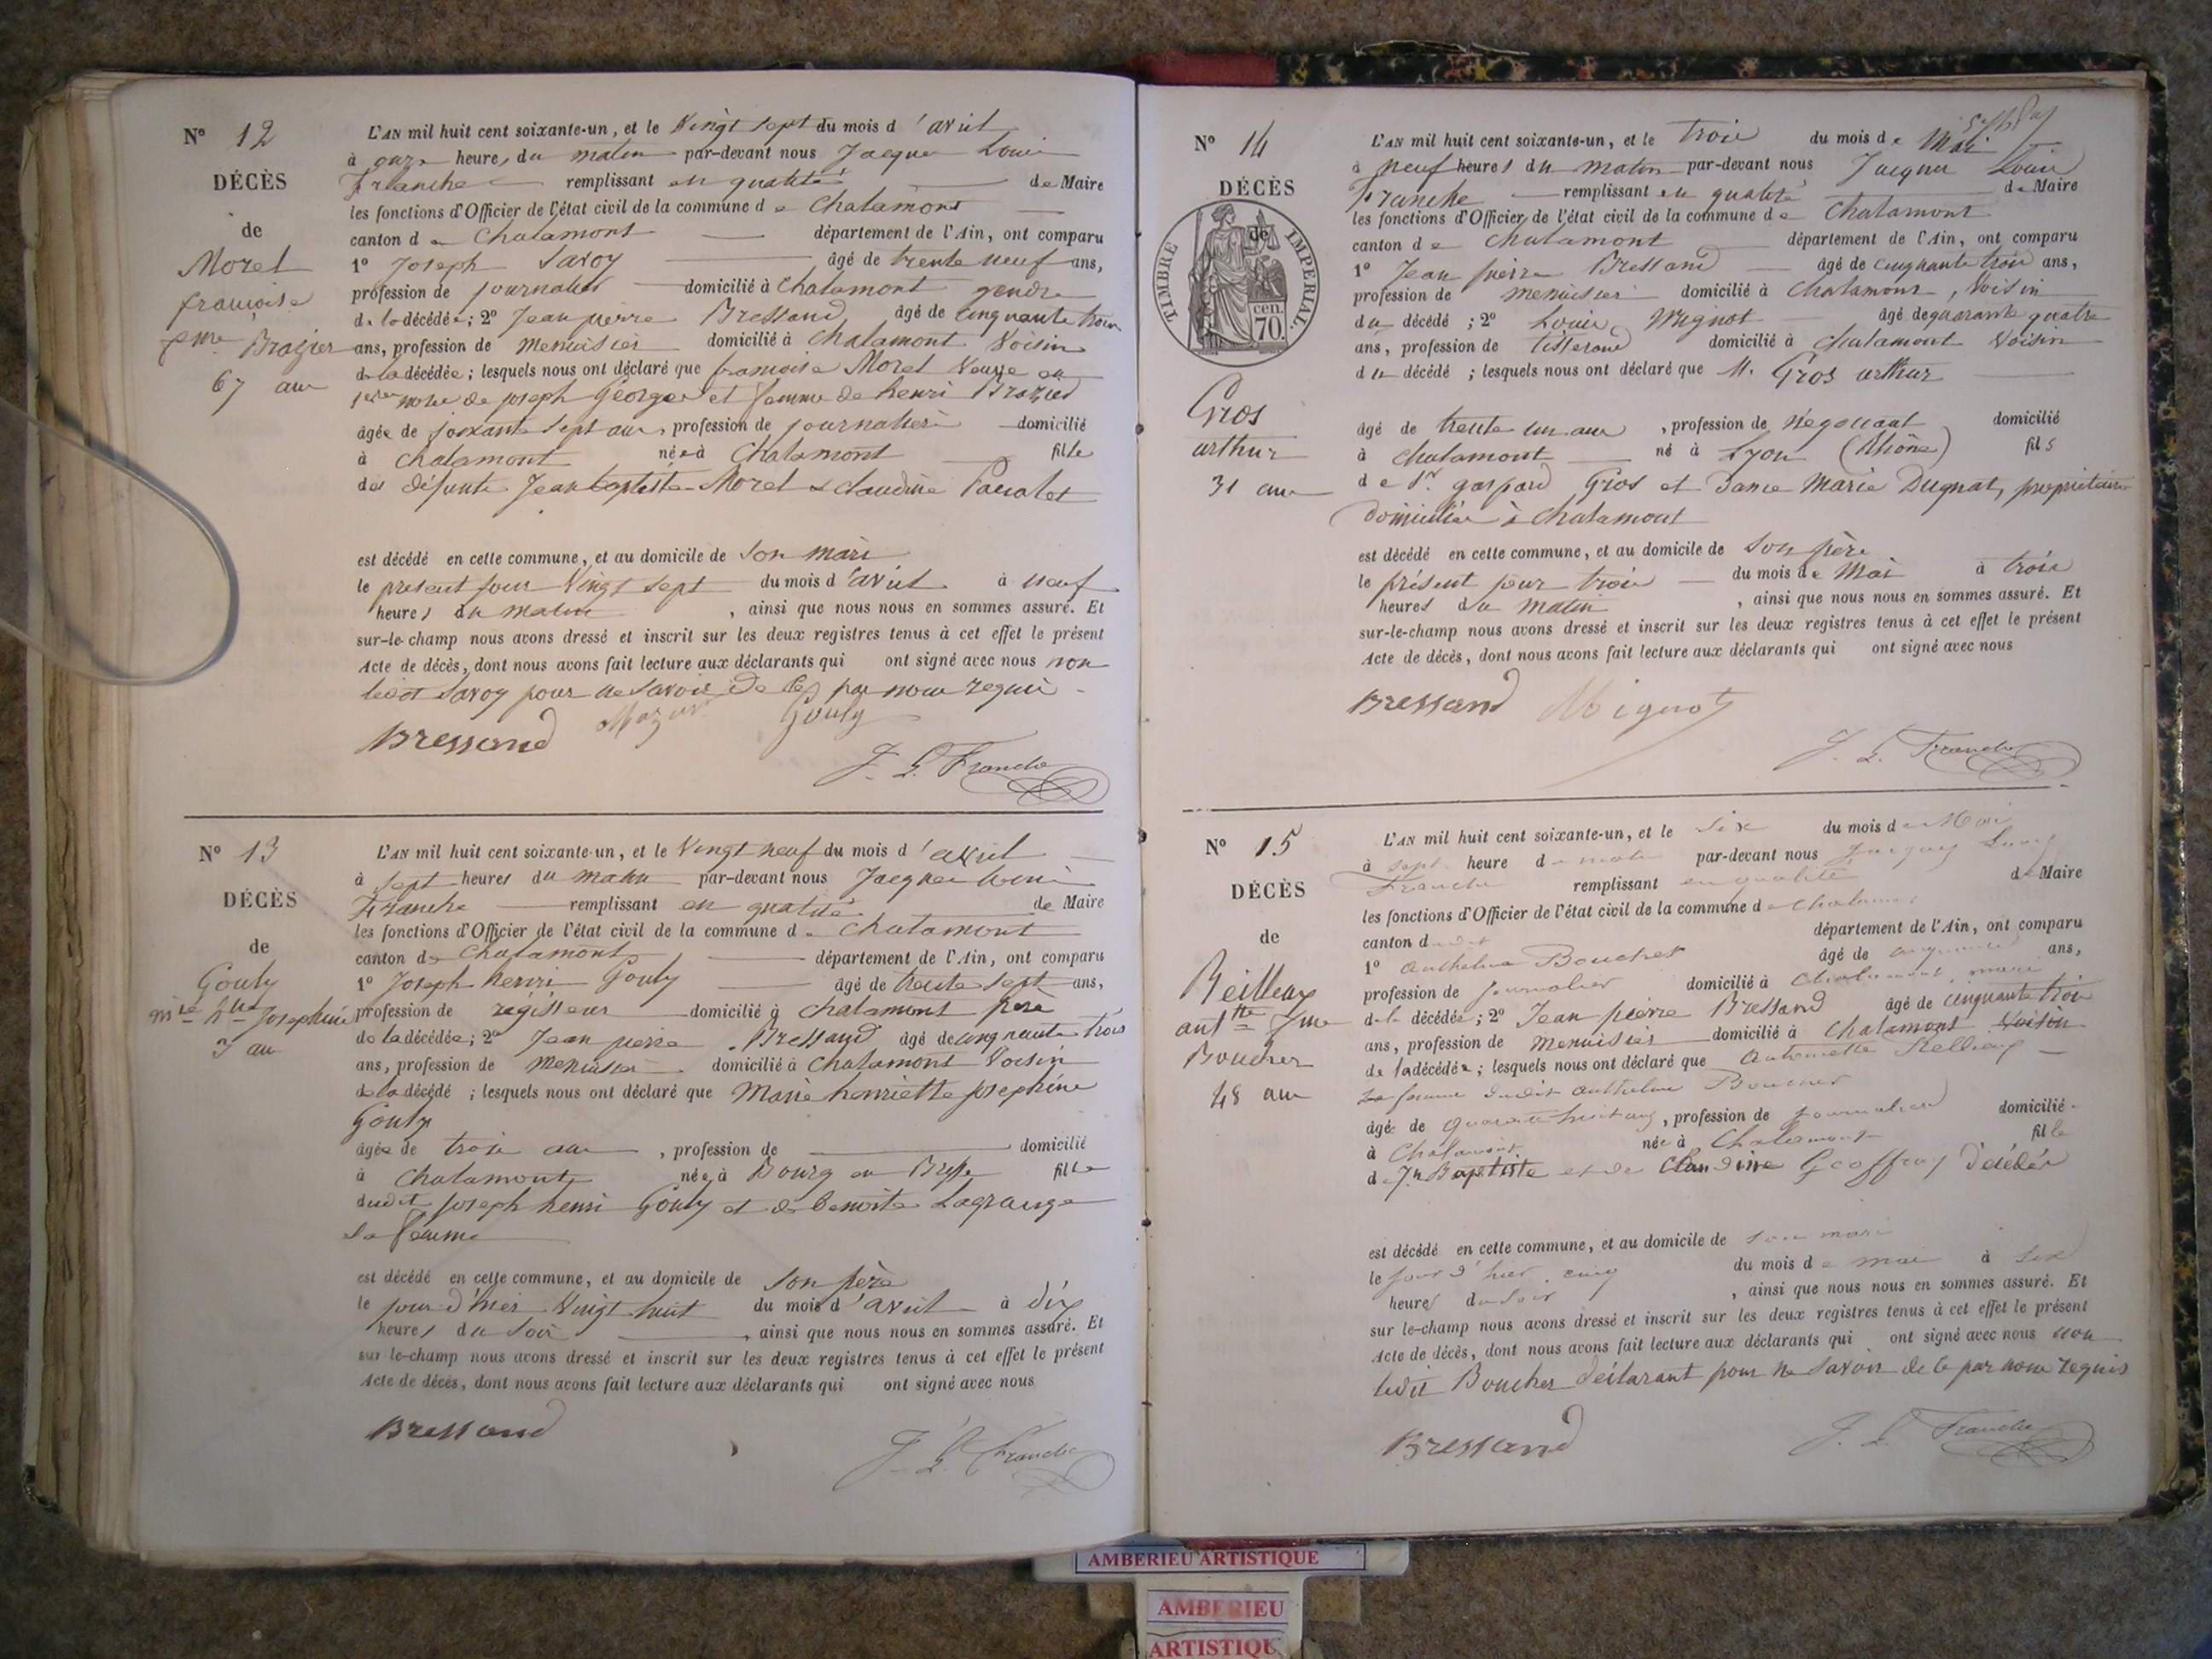 N° 12
DÉCÈS
de
Morel
françoise
fme Brazier
67 ans
L'AN mil huit cent soixante-un, et le Vingt sept du mois d'avril
à onze heures du matin par-devant nous Jacques Louis
Franche remplissant en qualité de Maire
les fonctions d'Officier de l'état civil de la commune de Chalamont
canton de Chalamont département de l'Ain, ont comparu
1° Joseph Savoy âgé de trente neuf ans,
profession de journalier domicilié à Chalamont gendre
de la décédée; 2° Jean pierre Bressand âgé de Cinquante trois
ans, profession de menuisier domicilié à Chalamont Voisin
de la décédée; lesquels nous ont déclaré que françoise Morel Veuve en
de joseph George et femme de henri Brazier
âgée de soixante sept ans, profession de journalière domicilié
à Chalamont née à Chalamont fille
des défunts Jean baptiste Morel & claudine
est décédé en cette commune, et au domicile de son mari
le présent jour Vingt sept du mois d'avril à neuf
heures du matin, ainsi que nous nous en sommes assuré. Et
sur-le-champ nous avons dressé et inscrit sur les deux registres tenus à cet effet le présent
Acte de décès, dont nous avons fait lecture aux déclarants qui ont signé avec nous non
ledit Savoy pour ne savoir de ce par nous requis
Bressand Gouly
J. L. Franche
N° 13
DÉCÈS
de
Gouly
mie htte Josephine
3 ans
L'AN mil huit cent soixante-un, et le Vingt neuf du mois d'avril
à sept heures du matin par-devant nous Jacques Louis
Franche remplissant en qualité de Maire
les fonctions d'Officier de l'état civil de la commune de Chalamont
canton de Chalamont département de l'Ain, ont comparu
1° Joseph henri Gouly âgé de trente sept ans,
profession de régisseur domicilié à Chalamont père
de la décédée; 2° Jean pierre Bressand âgé de cinquante trois
ans, profession de menuisier domicilié à Chalamont Voisin
de la décédé; lesquels nous ont déclaré que Marie henriette josephine
Gouly
âgée de trois ans, profession de domicilié
à Chalamont née à Bourg en Bresse fille
dudit joseph henri Gouly et de benoite Lagrange
sa femme
est décédé en cette commune, et au domicile de son père
le jour d'hier Vingt huit du mois d'avril à dix
heures du soir, ainsi que nous nous en sommes assuré. Et
sur le-champ nous avons dressé et inscrit sur les deux registres tenus à cet effet le présent
Acte de décès, dont nous avons fait lecture aux déclarants qui ont signé avec nous
Bressand
J. L. Franche
N° 14
DÉCÈS
de
TIMBRE IMPERIAL.
70 cen.
Gros
arthur
31 ans
L'AN mil huit cent soixante-un, et le trois du mois de Mai
à neuf heures du matin par-devant nous Jacques Louis
Franche remplissant en qualité de Maire
les fonctions d'Officier de l'état civil de la commune de Chalamont
canton de Chalamont département de l'Ain, ont comparu
1° Jean pierre Bressand âgé de cinquante trois ans,
profession de menuisier domicilié à Chalamont, Voisin
du décédé; 2° Louis Mignot âgé de quarante quatre
ans, profession de tisserand domicilié à Chalamont Voisin
du décédé; lesquels nous ont déclaré que M. Gros arthur
âgé de trente un ans, profession de Négociant domicilié
à Chalamont né à Lyon (Rhône) fils
de Sr gaspard Gros et Dame Marie Dugnat, propriétaires
domiciliés à Chalamont
est décédé en cette commune, et au domicile de son père
le présent jour trois du mois de Mai à trois
heures du matin, ainsi que nous nous en sommes assuré. Et
sur-le-champ nous avons dressé et inscrit sur les deux registres tenus à cet effet le présent
Acte de décès, dont nous avons fait lecture aux déclarants qui ont signé avec nous
Bressand Mignot
J. L. Franche
N° 15
DÉCÈS
de
Reilleux
anttte fme
Boucher
48 ans
L'AN mil huit cent soixante-un, et le Six du mois de Mai
à sept heure du matin par-devant nous Jacques Louis
Franche remplissant en qualité de Maire
les fonctions d'Officier de l'état civil de la commune de Chalamont
canton dudit département de l'Ain, ont comparu
1° Anthelme Boucher âgé de ans,
profession de journalier domicilié à Chalamont, mari
de la décédée; 2° Jean pierre Bressand âgé de cinquante trois
ans, profession de menuisier domicilié à Chalamont Voisin
de la décédée; lesquels nous ont déclaré que Antoinette Reilleux
femme dudit anthelme Boucher
âgé de quarante huit ans, profession de journalière domicilié
à Chalamont née à Chalamont fille
de Jn Baptiste et de Claudine Geoffray décédés
est décédé en cette commune, et au domicile de son mari
le jour d'hier cinq du mois de mai à six
heures du soir, ainsi que nous nous en sommes assuré. Et
sur le-champ nous avons dressé et inscrit sur les deux registres tenus à cet effet le présent
Acte de décès, dont nous avons fait lecture aux déclarants qui ont signé avec nous non
ledit Boucher déclarant pour ne savoir de ce par nous requis
Bressand
J. L. Franche
AMBERIEU ARTISTIQUE
AMBERIEU
ARTISTIQUE